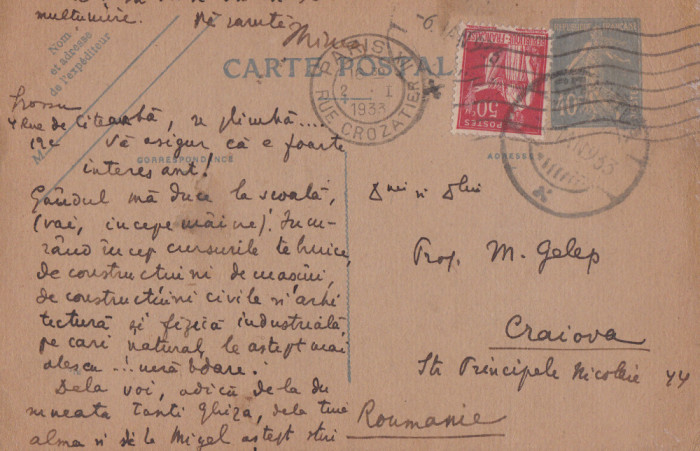 multumire. Vă sarută
Nom
et adresse
de l'expéditeur
M
CARTE POSTALE
PARIS XII
2 · I
1933
RUE CROZATIER
POSTES
50c
40
4 Rue de Citeaux
12e
se plimbă....
Vă asigur că e foarte
interesant!
CORRESPONDANCE
ADRESSE
Gândul mă duce la școală,
(vai, incepe mâine)! In cu-
rând incep cursurile tehnice,
de constructiuni de masini,
de constructiuni civile si arhi
tectură și fizică industrială,
pe cari natural le astept mai
ales cu
Dela voi, adică de la du
mneata tanti Ghiza, dela
alma si de la Migel astept stiri
Dnei si Dlui
Prof. M. Gelep
Craiova
Str Principele Nicolaie 44
Roumanie